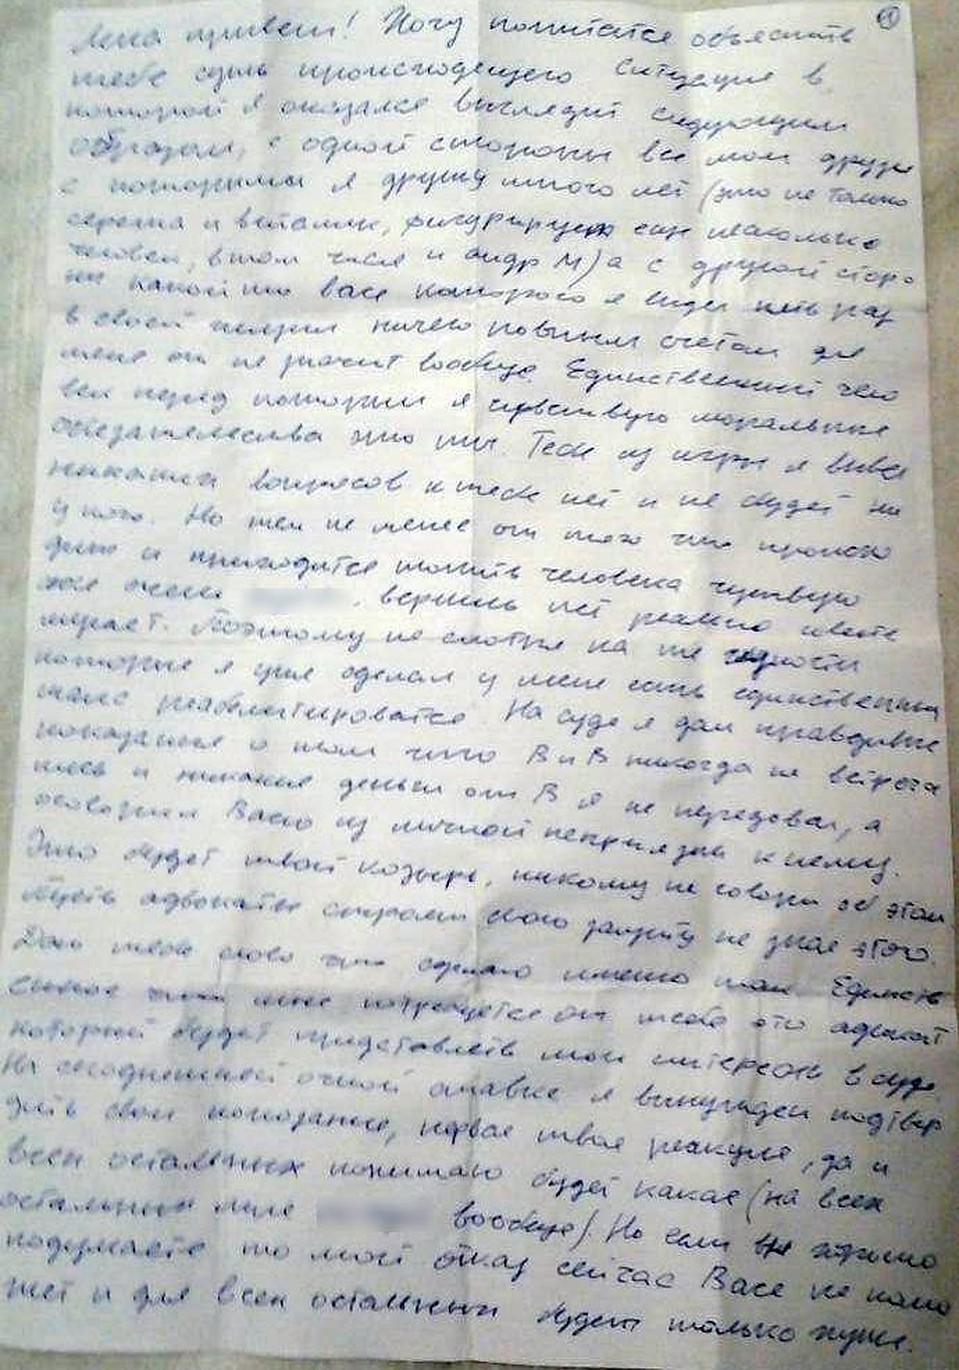 Лена привет! Хочу попытатся объяснить
тебе суть происходящего Ситуация в
которой я оказался выглядит следующим
образом, с одной стороны все мои друзья
с которыми я дружу много лет (это не только
серега и виталик, фигурируют еще несколько
человек, в том числе и андр М) а с другой сторо
ны какой то Вася которого я видел пять раз
в своей жизни ничего по большим счетам для
меня он не значит вообще. Единственный чело
век перед которым я чувствую моральные
обязательства это ты. Тебя из игры я вывел
никаких вопросов к тебе нет и не будет ни
у кого. Но тем не менее от того что происхо
дит и приходится топить человека чувствую
себя очень , веришь нет реально совесть
мучает. Поэтому не смотря на те гадости
которые я уже сделал у меня есть единственный
шанс реабилитироватся. На суде я дам правдивые
показания о том что В и В никогда не встреча
лись и никакие деньги от В я не передавал, а
оговорил Васю из личной неприязни к нему.
Это будет твой козырь, никому не говори об этом
пусть адвокаты строят свою защиту не зная этого.
Даю тебе слово что сделаю именно так. Единств
енное что мне потребуется от тебя это адвокат
который будет представлять мои интересы в суде.
На сегодняшней очной ставке я вынужден подтвер
дить свои показания, первая твоя реакция, да и
всех остальных понимаю будет какая (на всех
остальных мне вообще). Но если хорошо
подумаете то мой отказ сейчас Васе не помо
жет и для всех остальных будет только хуже.